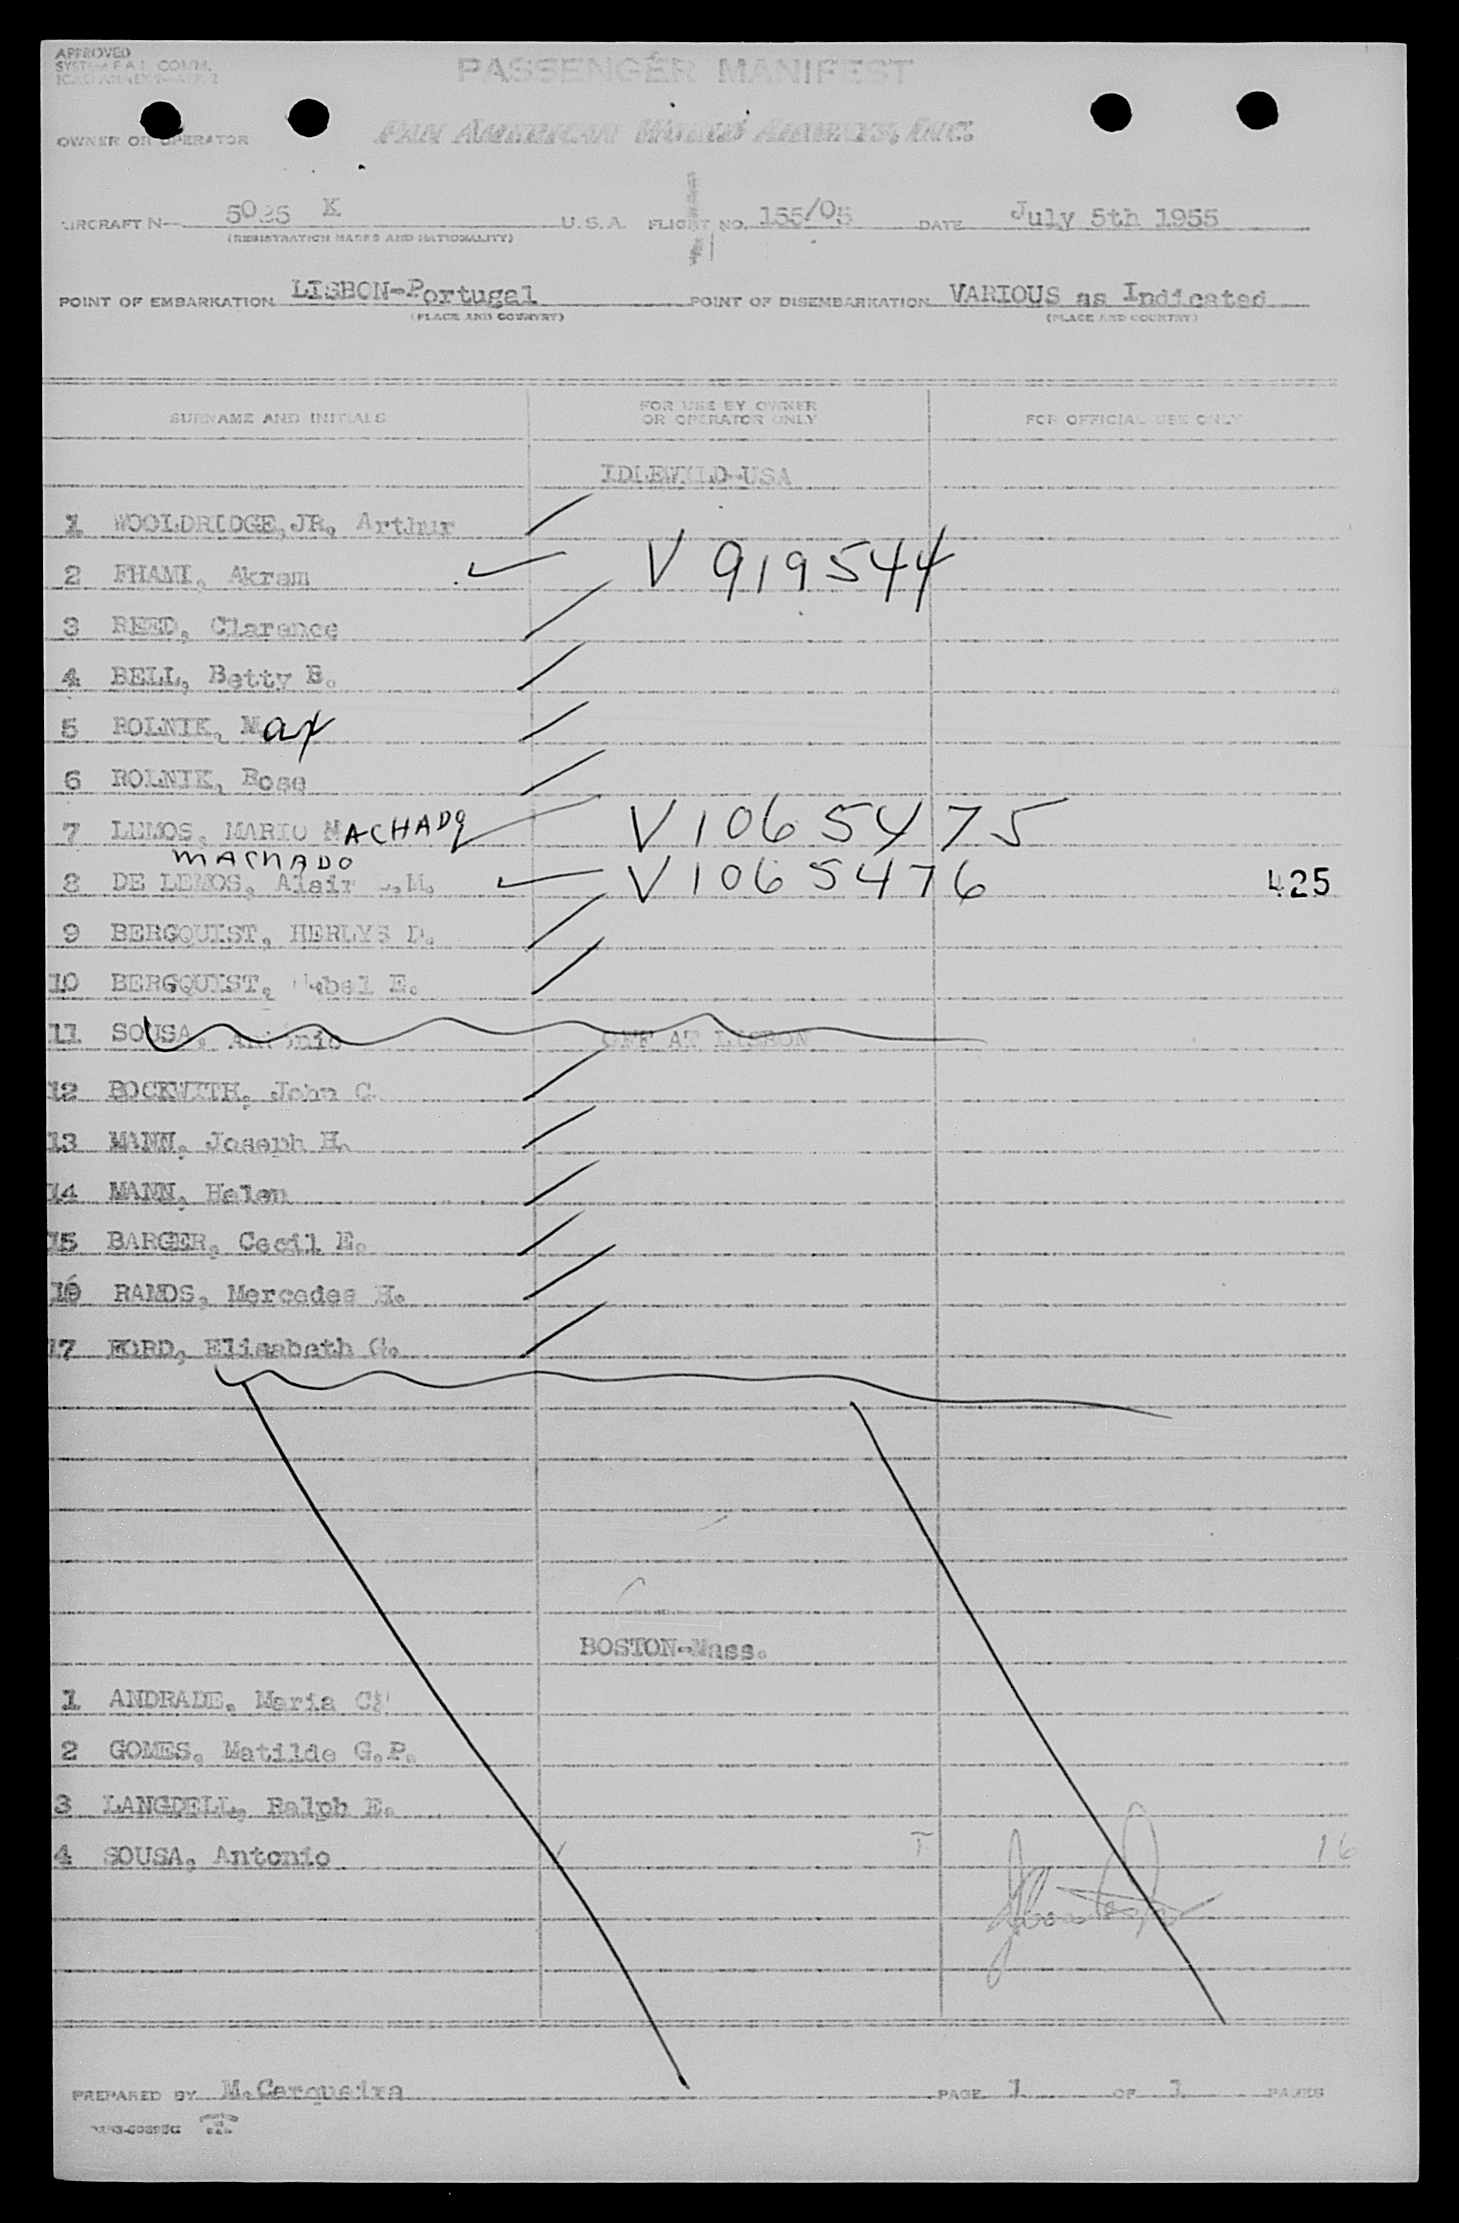 APPROVED
PASSENGER MANIFEST
OWNER OR OPERATOR PAN AMERICAN WORLD AIRWAYS, INC.
AIRCRAFT N— 5025 K U.S.A. FLIGHT NO. 155/05 DATE July 5th 1955
(REGISTRATION MARKS AND NATIONALITY)
POINT OF EMBARKATION LISBON-Portugal POINT OF DISEMBARKATION VARIOUS as Indicated
(PLACE AND COUNTRY) (PLACE AND COUNTRY)
SURNAME AND INITIALS FOR USE BY OWNER OR OPERATOR ONLY FOR OFFICIAL USE ONLY
IDLEWILD-USA
1 WOOLDRIDGE,JR, Arthur
2 FHAMI, Akram V 919544
3 REED, Clarence
4 BELL, Betty B.
5 ROLNIK, Max
6 ROLNIK, Rose
7 LEMOS, MARIO MACHADO V 1065475
MACHADO
8 DE LEMOS, Alair L.M. V 1065476 425
9 BERGQUIST, HERLYS D.
10 BERGQUIST, Mabel E.
11 SOUSA, Antonio OFF AT LISBON
12 BOCKWITH, John C.
13 MANN, Joseph H.
14 MANN, Helen
15 BARGER, Cecil E.
16 RAMOS, Mercedes H.
17 FORD, Elisabeth G.
BOSTON-Mass.
1 ANDRADE, Maria
2 GOMES, Matilde G.P.
3 LANGDELL, Ralph E.
4 SOUSA, Antonio T 16
PREPARED BY M.Cerqueira PAGE 1 OF 1 PAGES